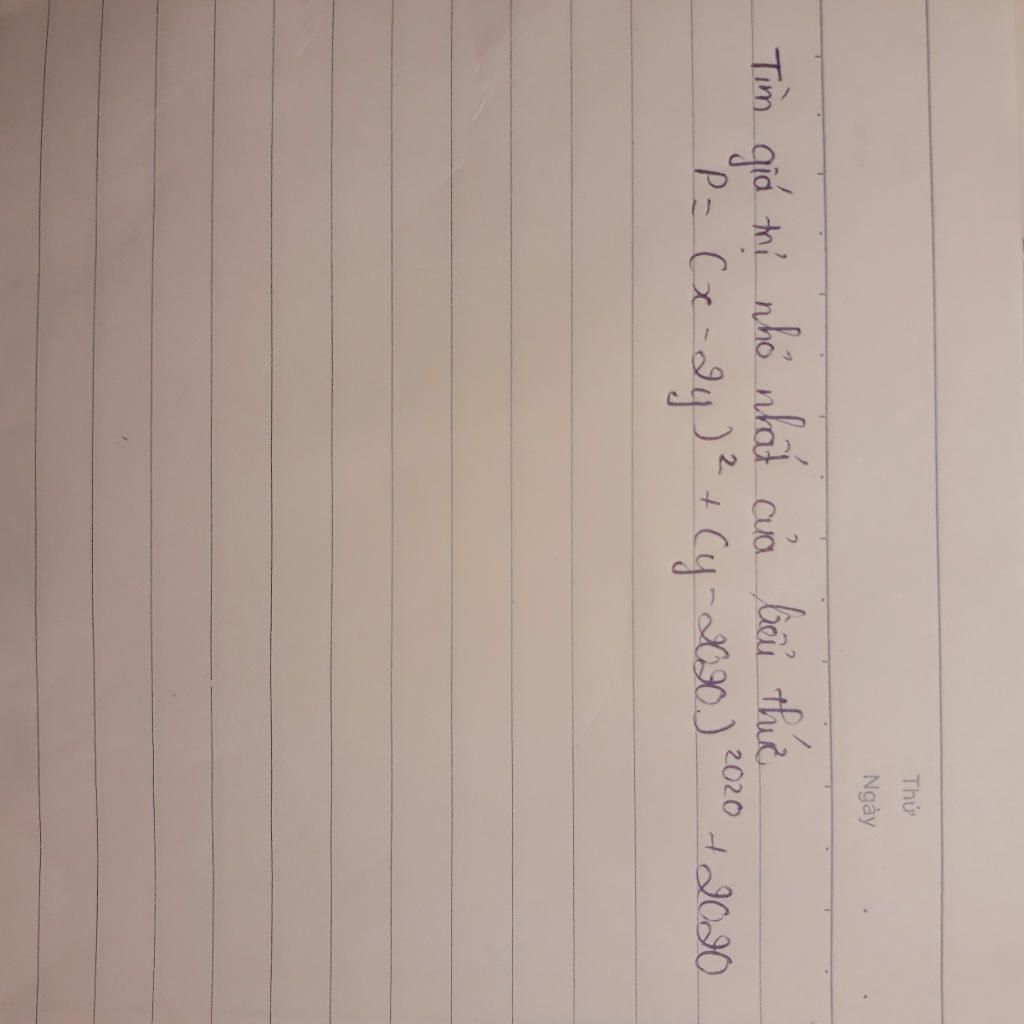 Thứ
Ngày
Tìm giá trị nhỏ nhất của biểu thức
P = (x - 2y)² + (y - 2020)²⁰²⁰ + 2020